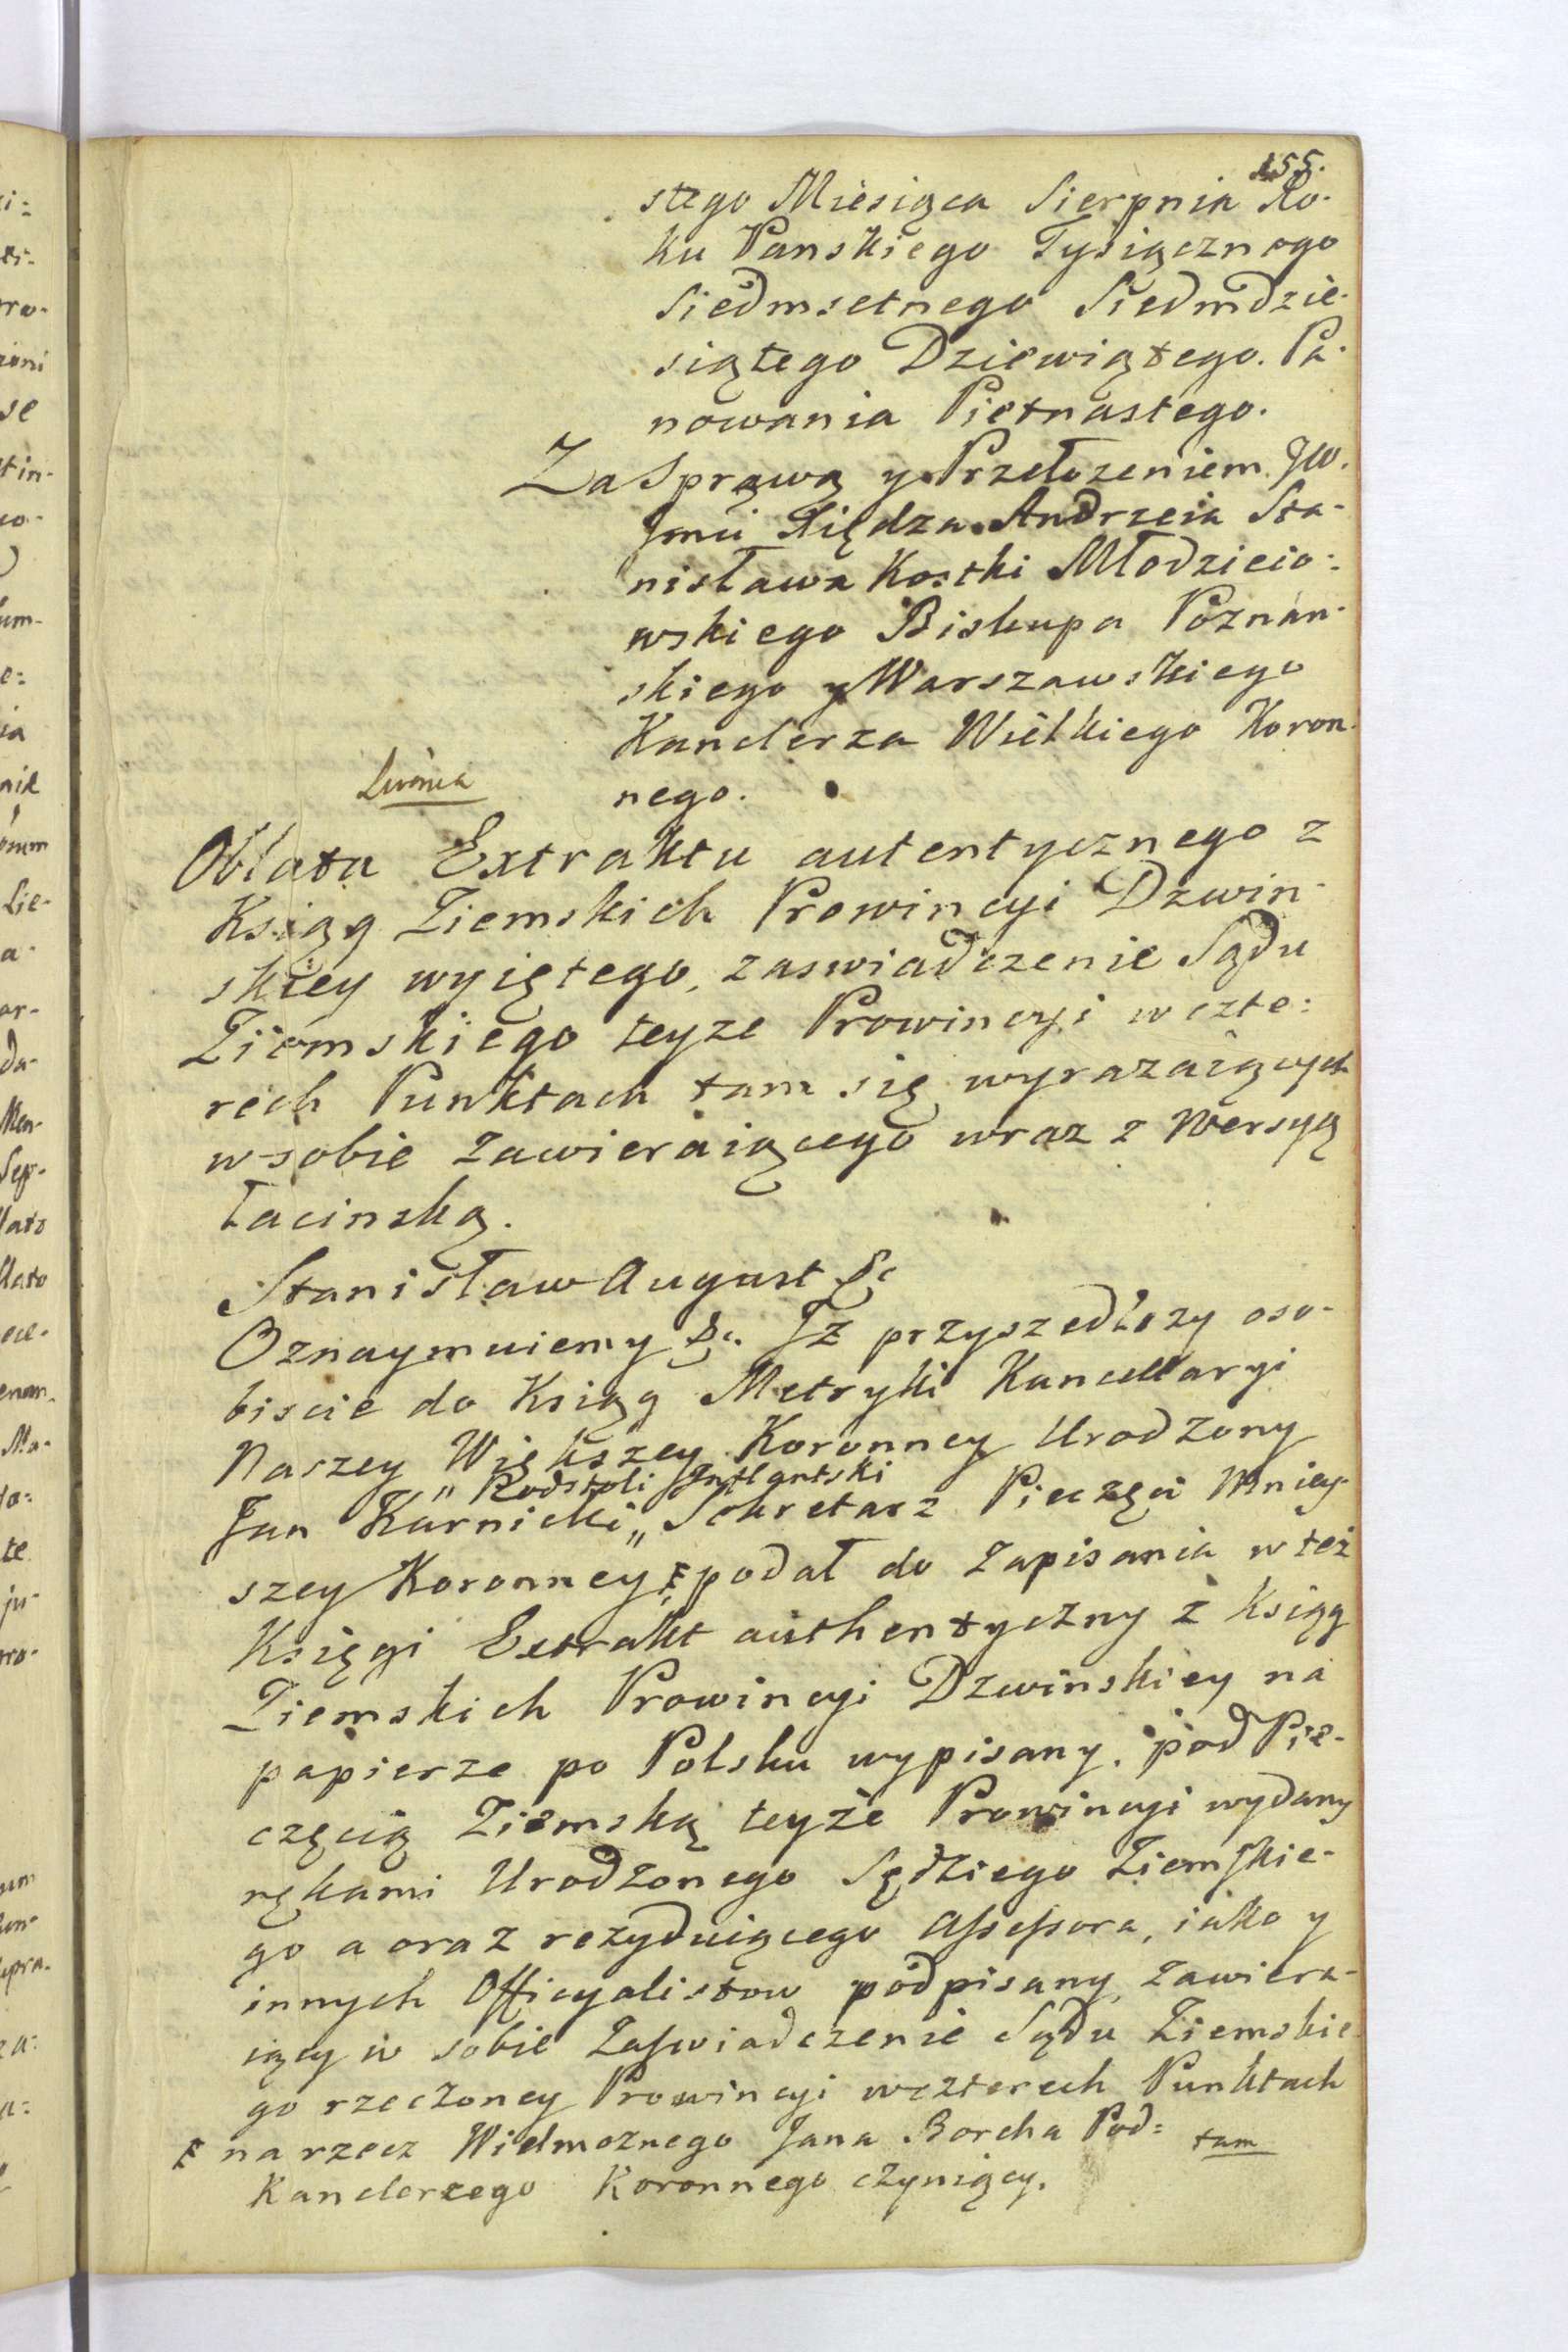 155.
stego Miesiąca Sierpnia Ro-
ku Panskiego Tysiącznego
Siedmsetnego Siedmdzie-
siątego Dziewiątego. Pa-
nowania Pietnastego.
Za Sprawą y Przełozeniem JW.
Jmci Xiędza Andrzeia Sta-
nisława Kostki Młodzieio-
wskiego Biskupa Poznan-
skiego y Warszawskiego
Kanclerza Wielkiego Koron-
nego.
Oblata Extraktu autentycznego z
Ksiąg Ziemskich Prowincyi Dzwin-
skiey wyiętego, zaswiadczenie Sądu
Ziemskiego teyze Prowincyi w czte:
rech Punktach tam się wyrazaiących
w sobie zawieraiącego wraz z Wersyą
łacinską.
Stanisław August &c
Oznaymuiemy &c. Iz przyszedłszy oso-
biscie do Ksiąg Metryki Kancellaryi
Naszey Większey Koronney Urodzony
" Podstoli Inflantski
Jan Karnicki " Sekretarz Pieczęci Mniey-
szey Koronney ₤ podał do zapisania w też
Księgi Extrakt authentyczny z Ksiąg
Ziemskich Prowincyi Dzwinskiey na
papierze po Polsku wypisany, pod Pie-
częcią Ziemską teyże Prowincyi wydany
rękami Urodzonego Sędziego Ziemskie-
go a oraz rezyduiącego Assessora, iako y
innych Officyalistow podpisany, zawiera-
iący w sobie Zaswiadczenie Sądu Ziemskie
go rzeczoney Prowincyi w czterech Punktach
₤ na rzecz Wielmoznego Jana Borcha Pod=
Kanclerzego Koronnego czyniący.
tam